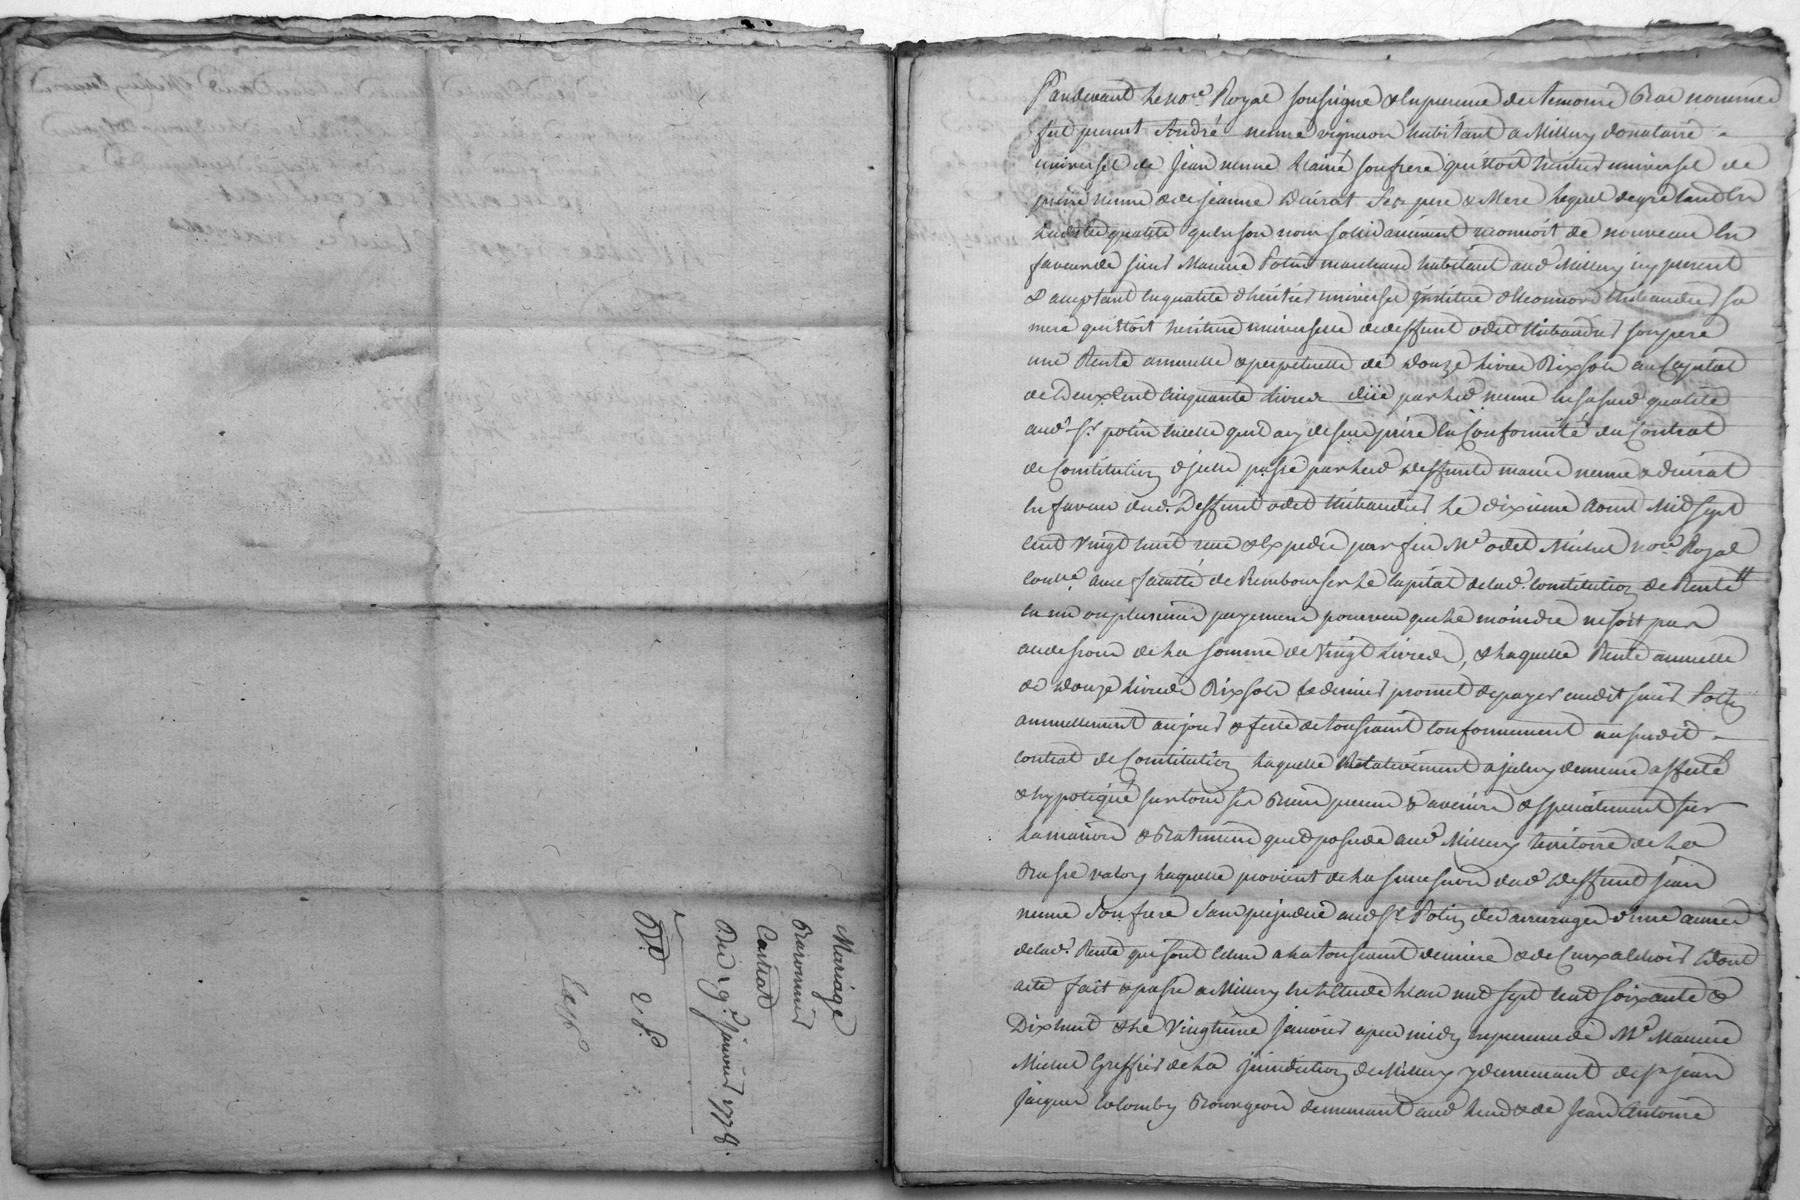 Mariage
Cartrat
Du 19e Janvier 1778.
Pardevant le nore. Royal soussigné & En presence des temoins Bas nommés
fut present André nenne vigneron habitant a Millery donataire
universel de Jean nenne L'ainé son frere qui Etoit héritier universel de
pierre nenne & de jeanne Duirat ses pere & Mere Lequel de gré tant En
Ladite qualité qu'en son nom solidairement reconnoit de nouveau En
faveur de sieur Maurice Potin marchand habitant aud. Millery icy present
& acceptant En qualité d'héritier universel institué d'Eleonnord thibaudier sa
mere qui Etoit heritiere universelle de deffunt odet thibaudier son pere
une Rente annuelle & perpetuelle de Douze Livres Dix sols au Capital
de Deux Cent Cinquante Livres düe par Led. nenne En sa susd. qualité
aud. Sr. potin En Conformité du Contrat
de Constitution d'jcelle passé par Lesd. deffunts mariés nenne & duirat
En faveur dud. Deffunt odet thibaudier Le dixieme aoust Mil sept
Cent Vingt huit reçu & Expedié par feu Me. odet Michel nore. Royal
avec faculté de Rembourser Le Capital de lad. Constitution de Rente
En un ou plusieurs payements pourveu que Le moindre ne soit pas
au dessous de La somme de Vingt Livres, & Laquelle Rente annuelle
de Douze Livres Dix sols Ce dernier promet de payer audit sieur Potin
annuellement au jour & feste de toussaint Conformement au susdit
Contrat de Constitution Laquelle Relativement a jceluy demeure affecté
& hypotéqué sur tous ses Biens presens & avenirs & specialement sur
La maison & Batiment qu'il possede aud. Millery territoire de La
Basse valory Laquelle provient de La succession dud. deffunt jean
nenne son frere sans prejudice aud. Sr. Potin des arrerages d'une année
de lad. Rente qui sont Echus a La toussaint derniere & de Ceux a Echoir Dont
acte fait & passé a Millery En L'Etude L'an mil sept Cent soixante &
Dix huit & Le Vingtieme janvier apres midy En presence de Me. Maurice
Michel Greffier de La Jurisdiction de Millery y demeurant de sr. jean
jacques Colomby Bourgeois demeurant aud. Lieu & de Jean Antoine